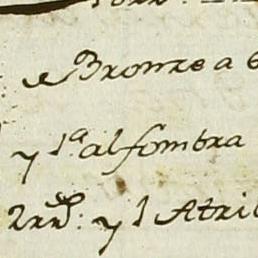 de Bronze a 6
y 1ª alfombra
2rrs. y 1 Atril